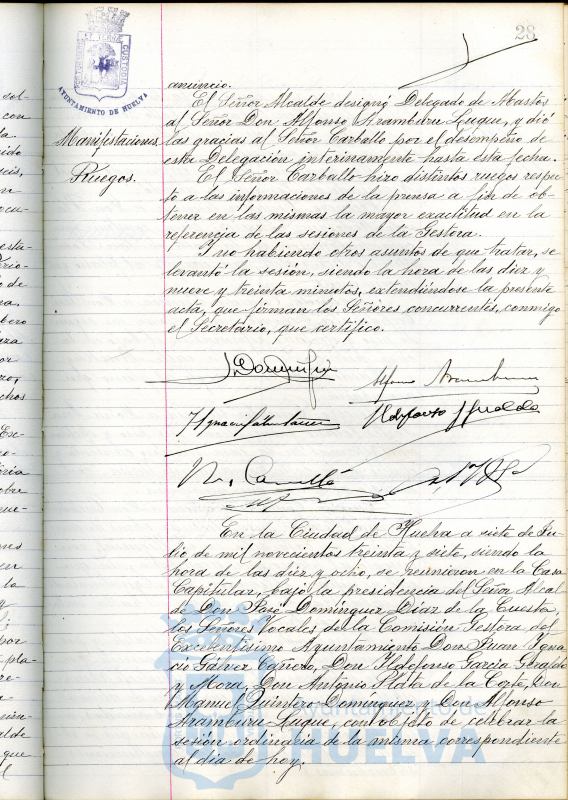 28
AYUNTAMIENTO DE HUELVA
anuncio.
El Señor Alcalde designó Delegado de Abastos
al Señor Don Alfonso Aramburu Luque, y dió
Manifestaciones
las gracias al Señor Carballo por el desempeño de
esta Delegación interinamente hasta esta fecha.
Ruegos.
El Señor Carballo hizo distintos ruegos respec-
to a las informaciones de la prensa a fin de ob-
tener en las mismas la mayor exactitud en la
referencia de las sesiones de la Gestora.
Y no habiendo otros asuntos de que tratar, se
levantó la sesión, siendo la hora de las diez y
nueve y treinta minutos, extendiéndose la presente
acta, que firman los Señores concurrentes, conmigo
el Secretario, que certifico.
Alfonso Aramburu
Ildefonso Giraldo
En la Ciudad de Huelva a siete de Ju-
lio de mil novecientos treinta y siete, siendo la
hora de las diez y ocho, se reunieron en la Casa
Capitular, bajo la presidencia del Señor Alcal-
de Don José Domínguez Díaz de la Cuesta,
los Señores Vocales de la Comisión Gestora del
Excelentísimo Ayuntamiento Don Juan Igna-
cio Gálvez Cañero, Don Ildefonso García Giraldo
y Mora, Don Antonio Plata de la Corte, Don
Manuel Quintero Domínguez y Don Alfonso
Aramburu Luque, con objeto de celebrar la
sesión ordinaria de la misma, correspondiente
al dia de hoy.
Ayuntamiento de
HUELVA